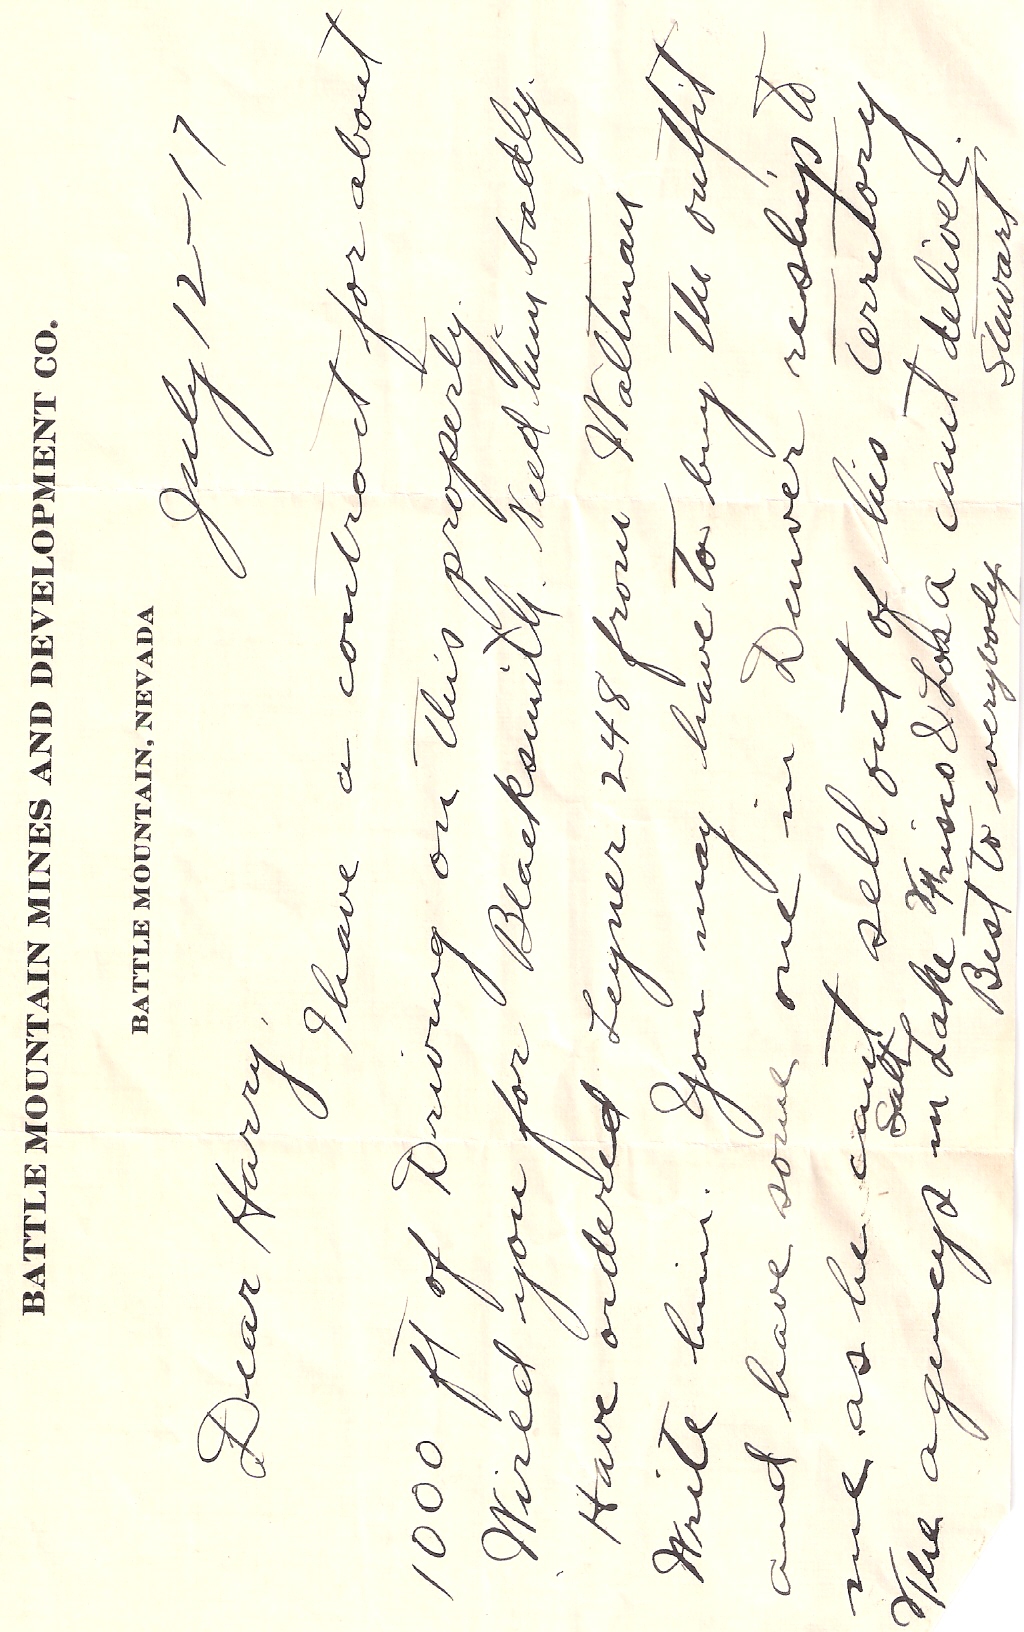 BATTLE MOUNTAIN MINES AND DEVELOPMENT CO.
BATTLE MOUNTAIN, NEVADA
July 12-17
Dear Harry,
I have a contract for about
1000 ft of Driving on this property.
Wired you for Blacksmith. Need him badly.
Have ordered Leyner 248 from Waltman
Write him. You may have to buy the outfit
and have some one in Denver reship to
me as he cant sell out of his territory
The agencys in Salt Lake Frisco & Los a cant deliver.
Best to everybody
Stewart